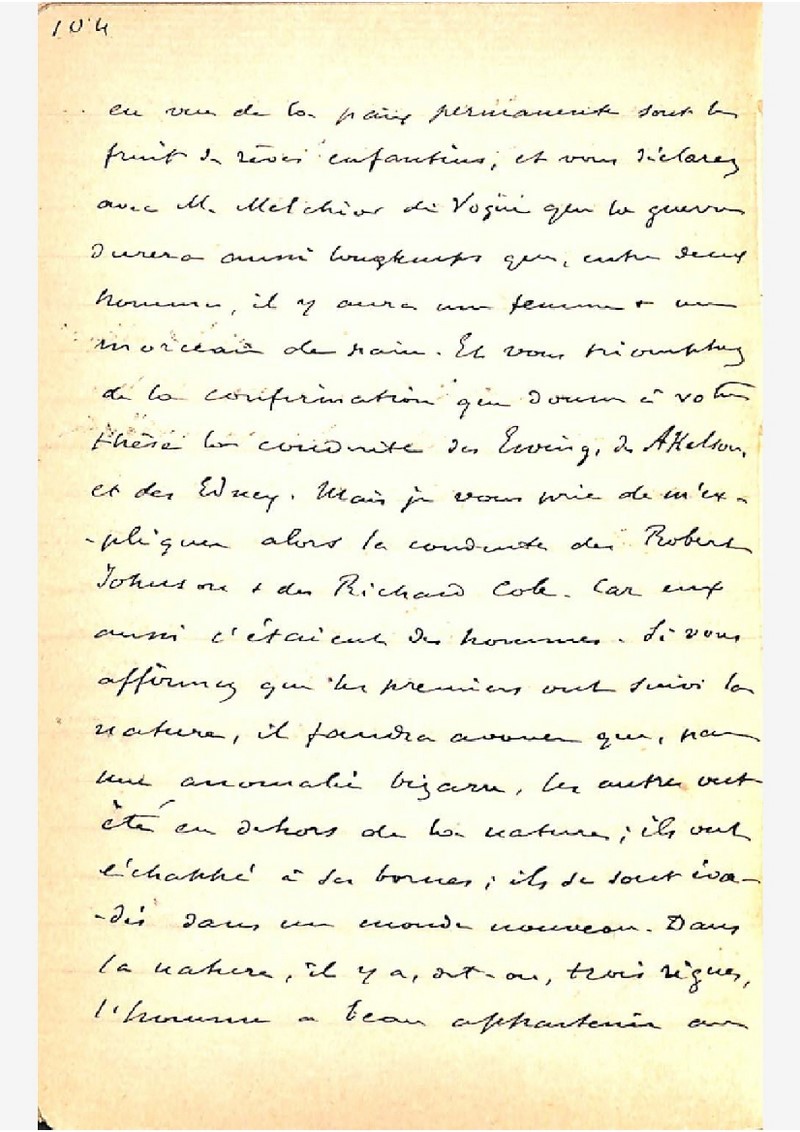 104
en vue de la paix permanente sont le
fruit de rêves enfantins, et vous déclarez
avec M. Melchior de Vogüé que la guerre
durera aussi longtemps que, entre deux
hommes, il y aura une femme & un
morceau de pain. Et vous triomphez
de la confirmation que donne à votre
thèse la conduite des Ewing, des Akelson,
et des Edney. Mais je vous prie de m'ex-
-pliquer alors la conduite des Robert
Johnson & des Richard Cole. Car eux
aussi c'étaient des hommes. Si vous
affirmez que les premiers ont suivi la
nature, il faudra avouer que, par
une anomalie bizarre, les autres ont
été en dehors de la nature; ils ont
échappé à ses bornes; ils se sont éva-
-dés dans un monde nouveau. Dans
la nature, il y a, dit-on, trois règnes,
l'homme a beau appartenir au